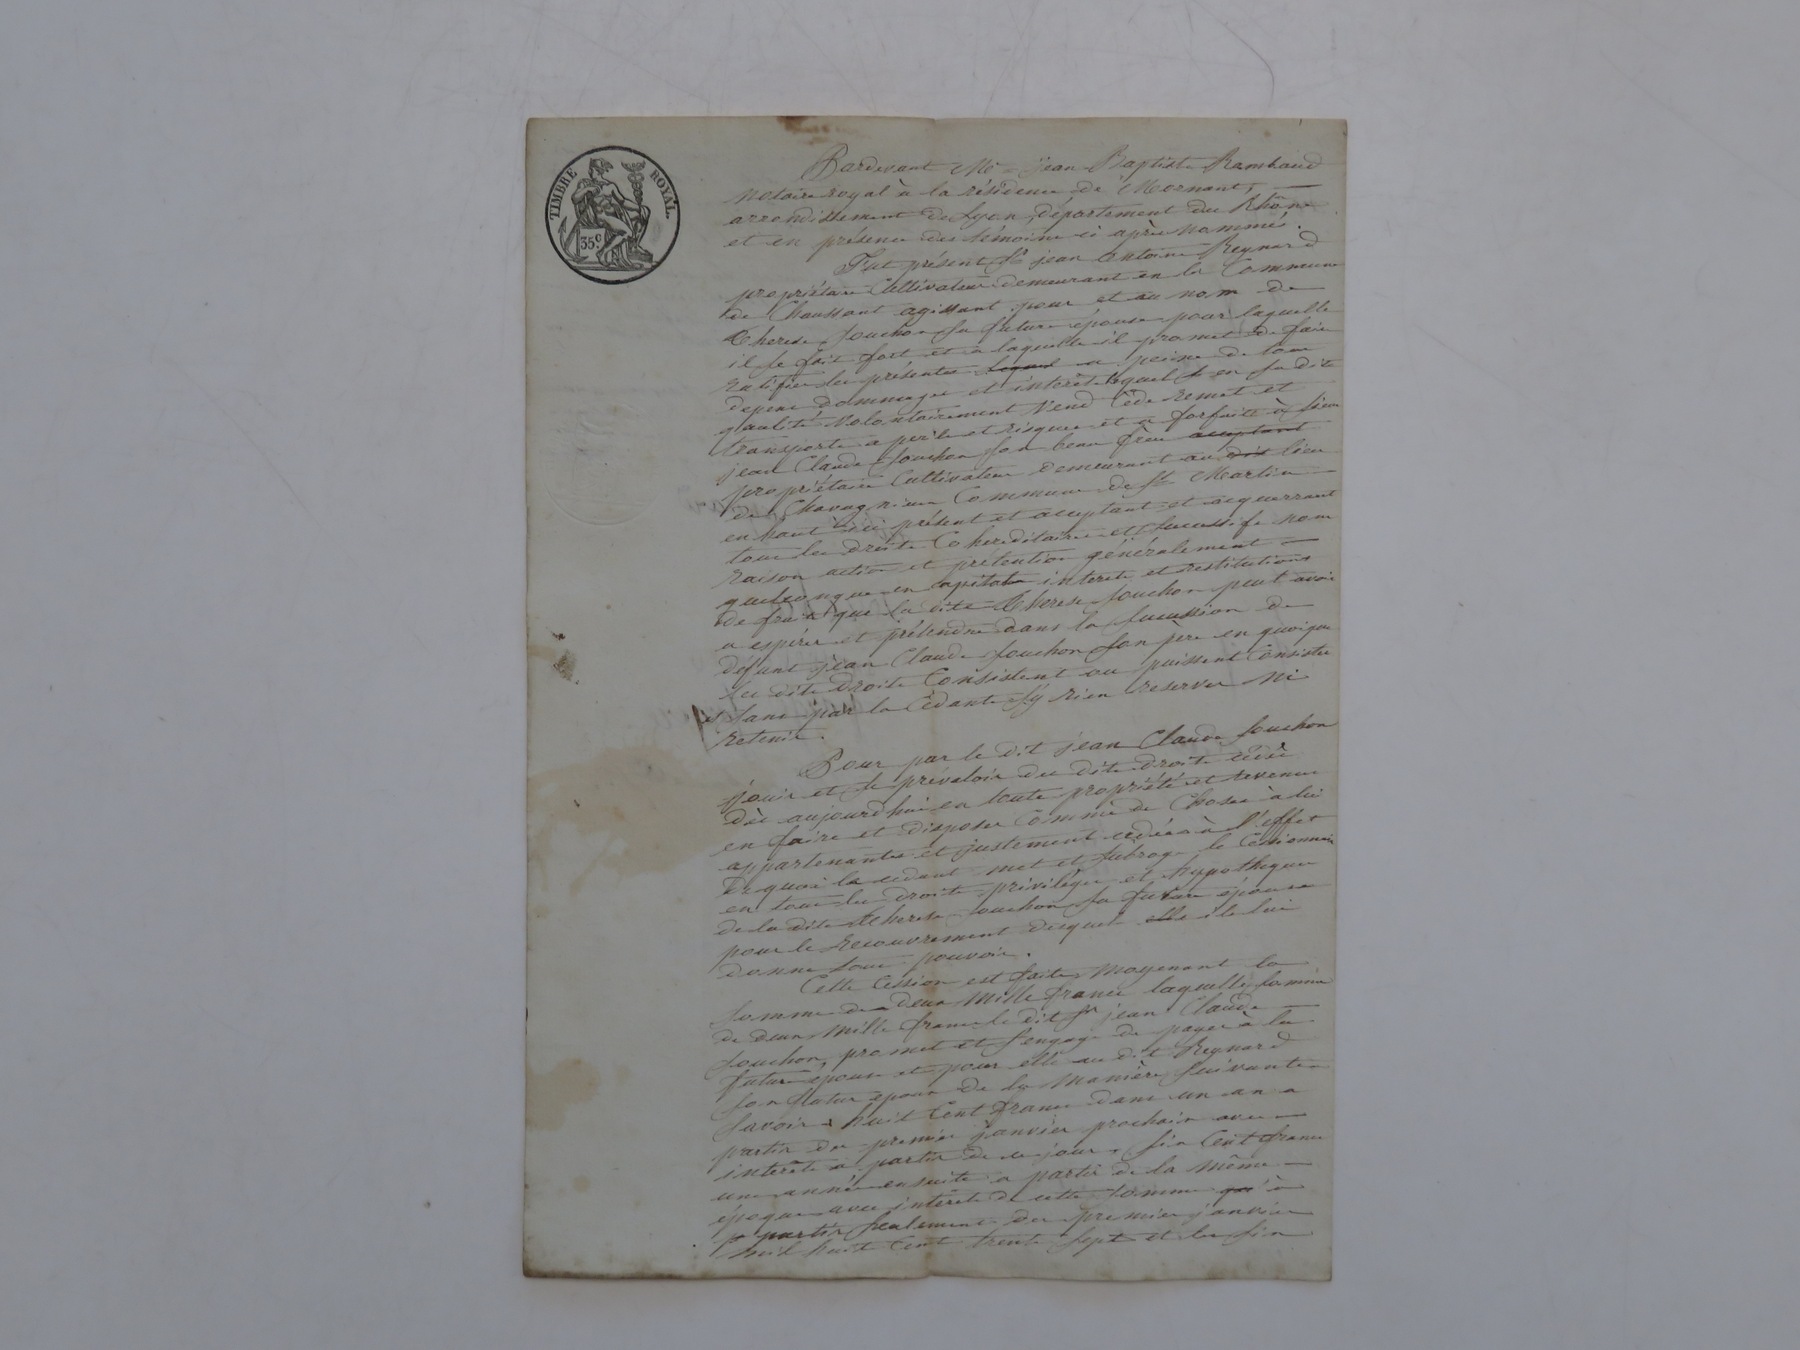 TIMBRE ROYAL.
35 c
Pardevant Me jean Baptiste Rambaud
Notaire royal à la résidence de Mornant,
arrondissement de Lyon, département du Rhône
et en présence des témoins ci après nommés.
Fut présent Sr jean Antoine Reynard
propriétaire Cultivateur demeurant en la Commune
de Chaussant agissant pour et au nom de
Therese Souchon sa future épouse pour laquelle
il se fait fort et a laquelle il promet de faire
Ratifier les présentes a peine de tous
depens dommages et intérêts lequel en sa dite
qualité Volontairement Vend Cède Remet et
transporte a perils et risques et a forfait à Sieur
jean Claude Souchon son beau frère acceptant
propriétaire Cultivateur demeurant au dit lieu
de Chavagnieu Commune de St Martin
en haut ici présent et acceptant et acquerrant
tous les droits Cohereditaires et Successifs nom
Raison action et prétention généralement
quelconque en Capitaux interets et restitutions
de fruits que la dite Therese Souchon peut avoir
a espérer et prétendre dans la Succession de
défunt jean Claude Souchon son père en quoique
les dits droits Consistent ou puissent Consister
et Sans par la Cédante s'y rien reserver Ni
Retenir.
Pour par le dit jean Claude Souchon
jouir et se prévaloir des dits droits cédés
dès aujourdhui en toute propriété et revenus
en faire et disposer Comme de Choses à lui
appartenantes et justement cédées à l'effet
de quoi le cedant met et subroge le Cessionnaire
en tous les droits privilèges et hypotheques
de la dite Therese Souchon sa future épouse
pour le Recouvrement desquels elle il lui
donne tous pouvoirs.
Cette Cession est faite Moyenant la
Somme de deux Mille francs laquelle somme
de deux Mille francs le dit Sr jean Claude
Souchon, promet et s'engage de payer à la
future épouse et pour elle au dit Reynard
son futur époux de la Manière Suivante
Savoir huit Cent francs dans un an a
partir du premier janvier prochain avec
intérêts a partir de ce jour, Six Cent francs
une année ensuite a partir de la Même
époque avec intérêts de cette somme qu'à
partir Seulement du premier janvier
mil huit Cent trente Sept et les Six